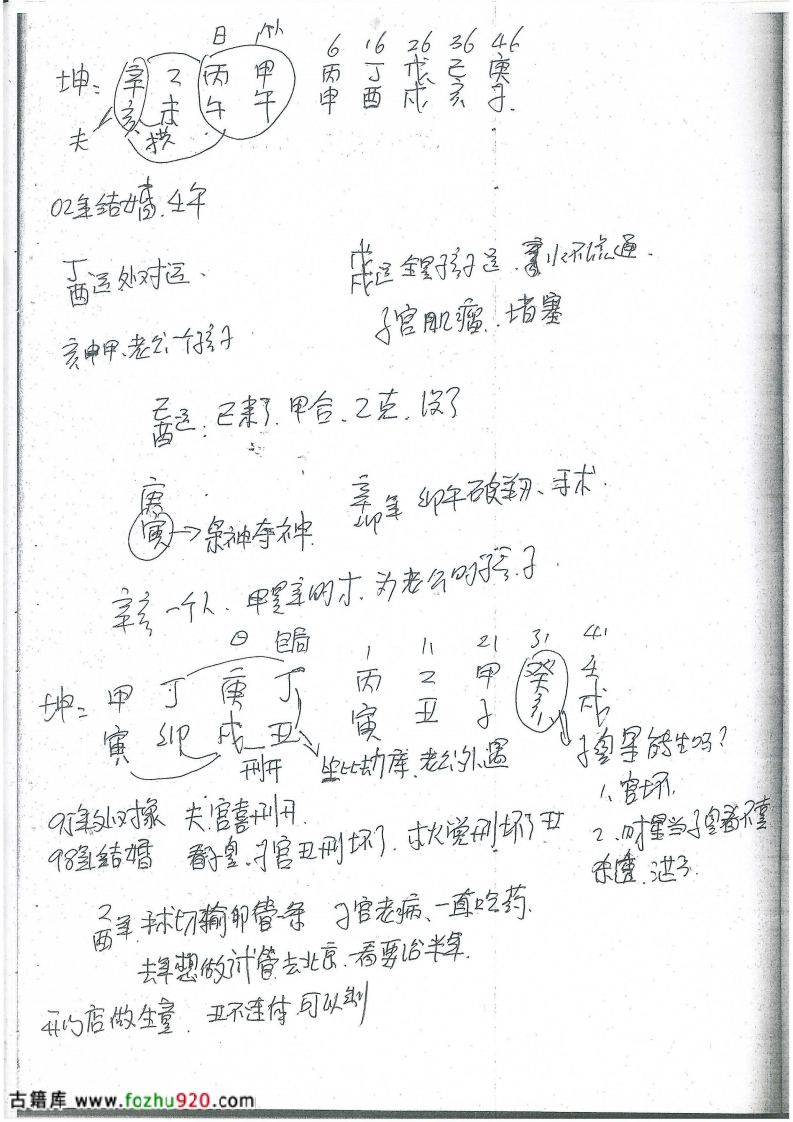 日 6 16 26 36 46
坤: 辛 乙 丙 甲 丙 丁 戊 己 庚
亥 未 午 午 申 酉 戌 亥 子
夫 拱
02年结婚.壬午
丁酉运处对运. 戊戌运全是孩子运.
子宫肌瘤.堵塞
亥中甲、老公一个孩子
己酉运:己来了.甲合、乙克.没了
庚寅→枭神夺神. 辛卯年 卯午破、手术.
辛亥一个人.甲是辛的才.为老公的孩子.
日 包局 1 11 21 31 41
坤: 甲 丁 庚 丁 丙 乙 甲 癸 壬
寅 卯 戌 丑 寅 丑 子 亥 戌
刑开 坐比劫库.老公外遇 子息星能生吗?
95年处对像 夫宫喜刑开. 1、官坏.
98年结婚 看子息、子宫丑刑坏了. 2、
乙酉年.手术切输卵管一条 子宫老病、一直吃药.
去年想做试管.去北京.看要治半年.
开的店做生意. 丑不连体 可以
古籍库_www.fozhu920.com